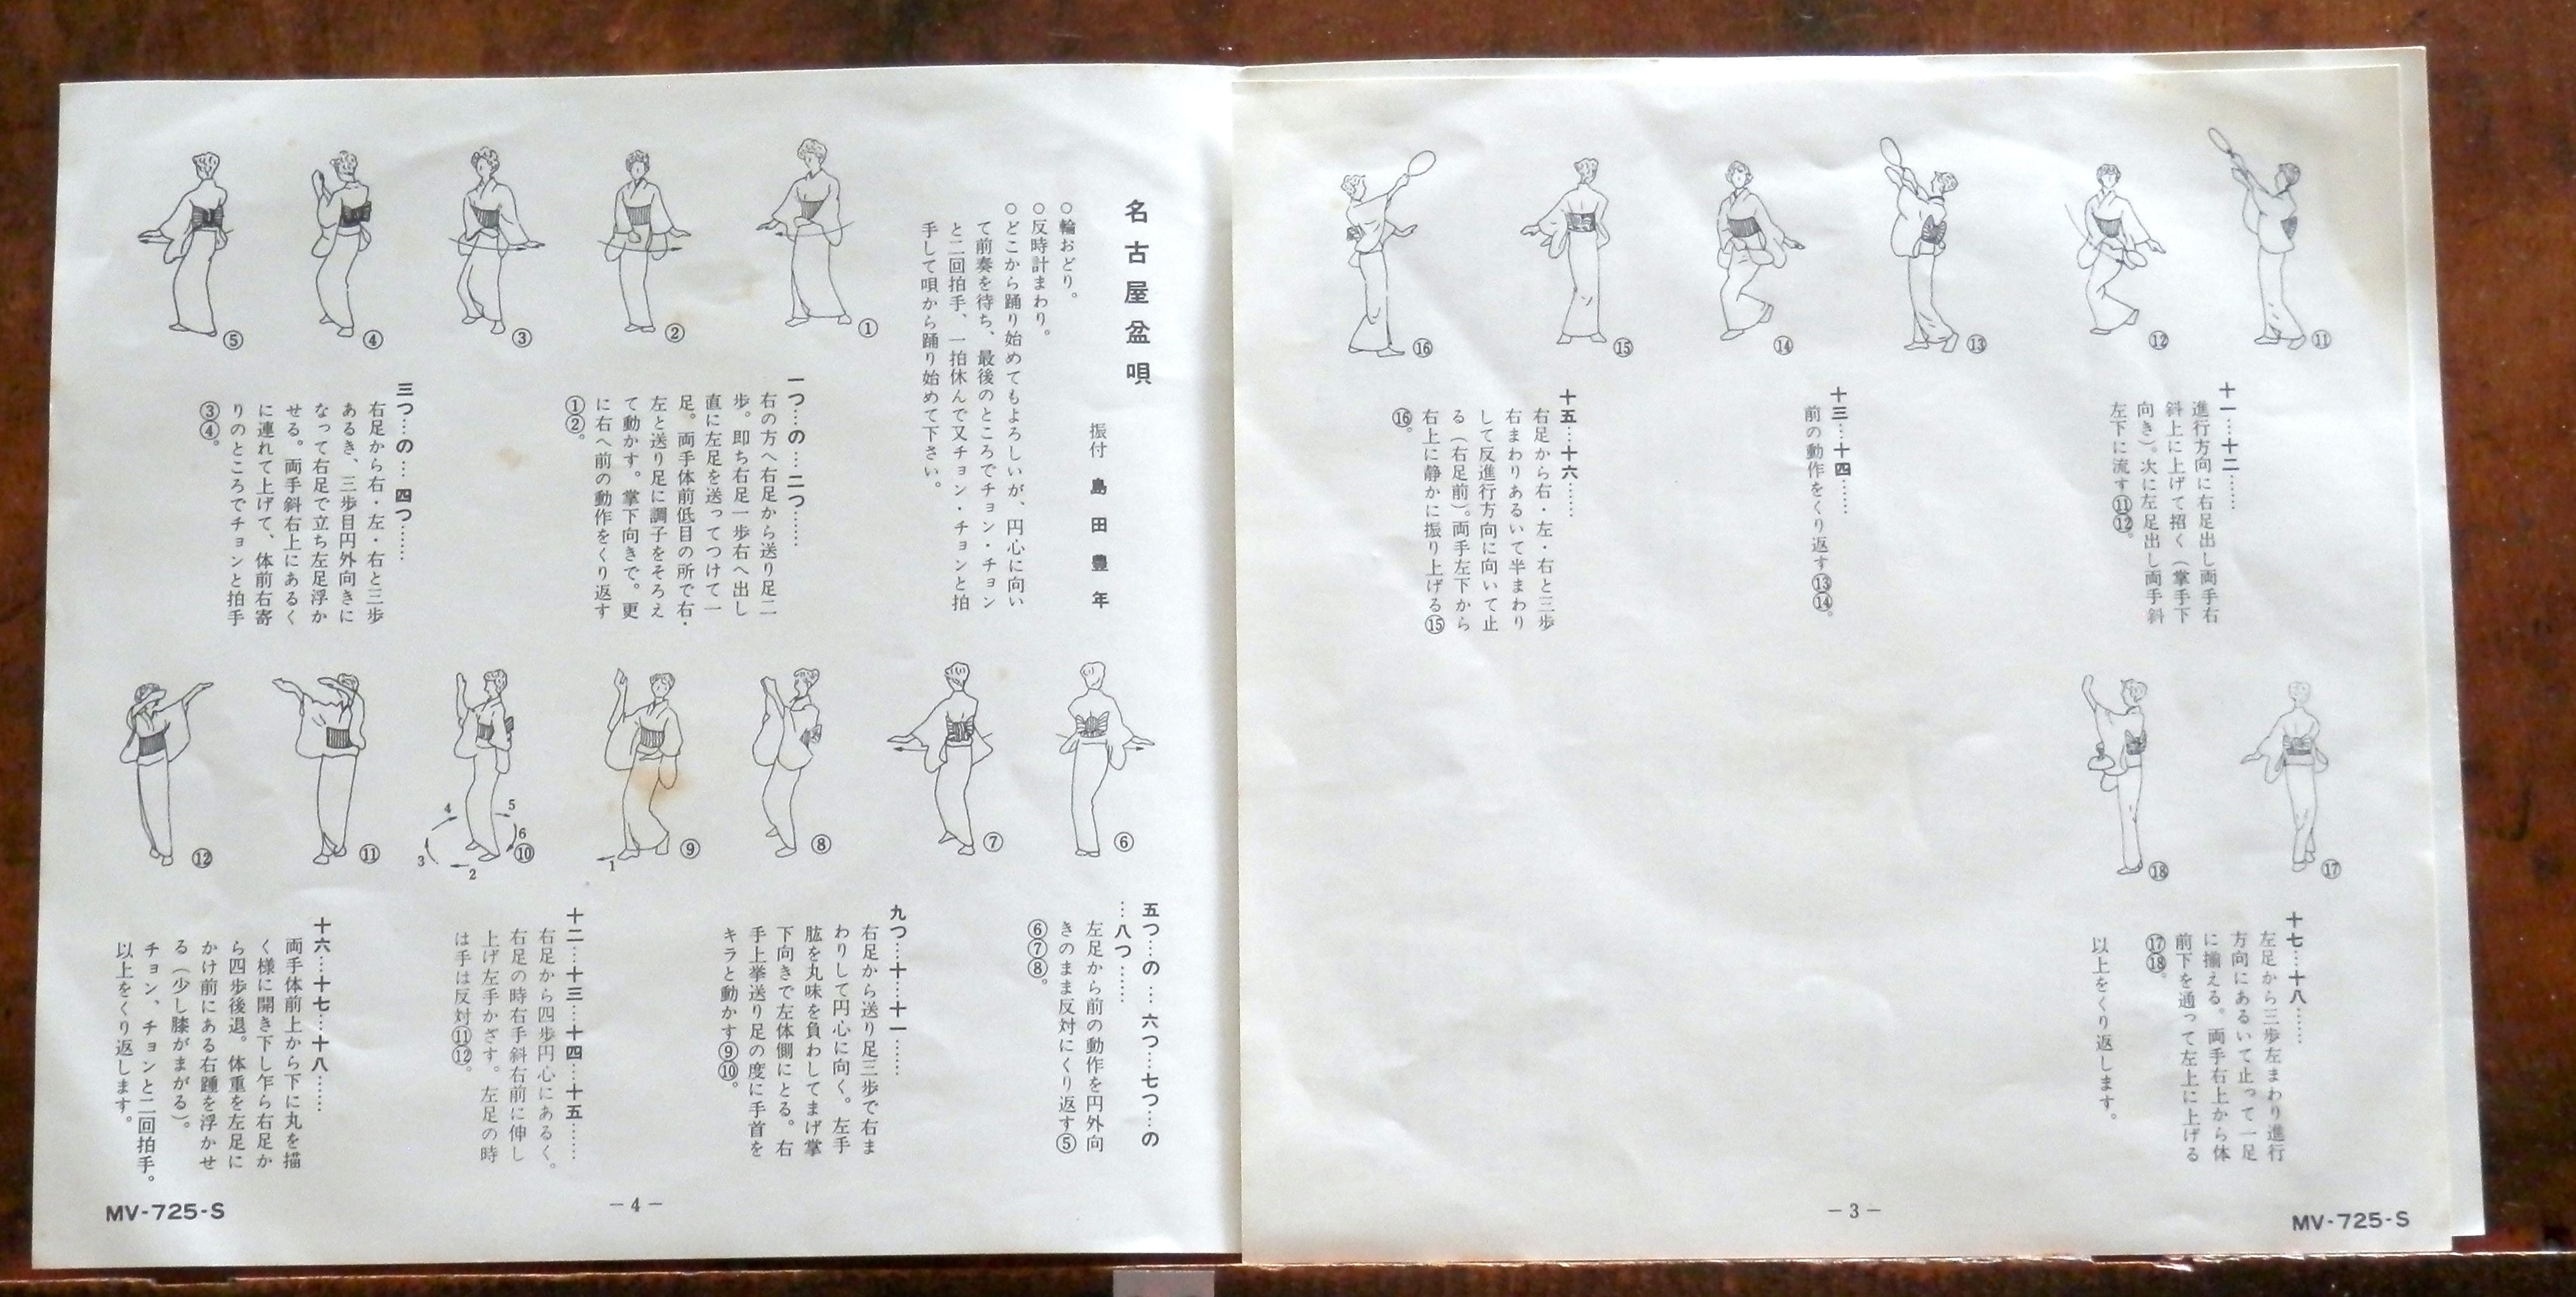 ⑪
⑫
⑬
⑭
⑮
⑯
十一…十二……
進行方向に右足出し両手右
斜上に上げて招く（掌手下
向き）。次に左足出し両手斜
左下に流す⑪⑫。
十三…十四……
前の動作をくり返す⑬⑭。
十五…十六……
右足から右・左・右と三歩
右まわりあるいて半まわり
して反進行方向に向いて止
る（右足前）。両手左下から
右上に静かに振り上げる⑮
⑯。
⑰
⑱
十七…十八……
左足から三歩左まわり進行
方向にあるいて止って一足
に揃える。両手右上から体
前下を通って左上に上げる
⑰⑱。
以上をくり返します。
－3－
MV-725-S
名古屋盆唄
振付 島田豊年
○輪おどり。
○反時計まわり。
○どこから踊り始めてもよろしいが、円心に向い
て前奏を待ち、最後のところでチョン・チョン
と二回拍手、一拍休んで又チョン・チョンと拍
手して唄から踊り始めて下さい。
①
②
③
④
⑤
一つ…の…二つ……
右の方へ右足から送り足二
歩。即ち右足一歩右へ出し
直に左足を送ってつけて一
足。両手体前低目の所で右・
左と送り足に調子をそろえ
て動かす。掌下向きで。更
に右へ前の動作をくり返す
①②。
三つ…の…四つ……
右足から右・左・右と三歩
あるき、三歩目円外向きに
なって右足で立ち左足浮か
せる。両手斜右上にあるく
に連れて上げて、体前右寄
りのところでチョンと拍手
③④。
⑥
⑦
⑧
⑨
1
⑩
2
3
4
5
6
⑪
⑫
五つ…の…六つ…七つ…の
…八つ……
左足から前の動作を円外向
きのまま反対にくり返す⑤
⑥⑦⑧。
九つ…十…十一……
右足から送り足三歩で右ま
わりして円心に向く。左手
肱を丸味を負わしてまげ掌
下向きで左体側にとる。右
手上挙送り足の度に手首を
キラと動かす⑨⑩。
十二…十三…十四…十五……
右足から四歩円心にあるく。
右足の時右手斜右前に伸し
上げ左手かざす。左足の時
は手は反対⑪⑫。
十六…十七…十八……
両手体前上から下に丸を描
く様に開き下し乍ら右足か
ら四歩後退。体重を左足に
かけ前にある右踵を浮かせ
る（少し膝がまがる）。
チョン、チョンと二回拍手。
以上をくり返します。
－4－
MV-725-S